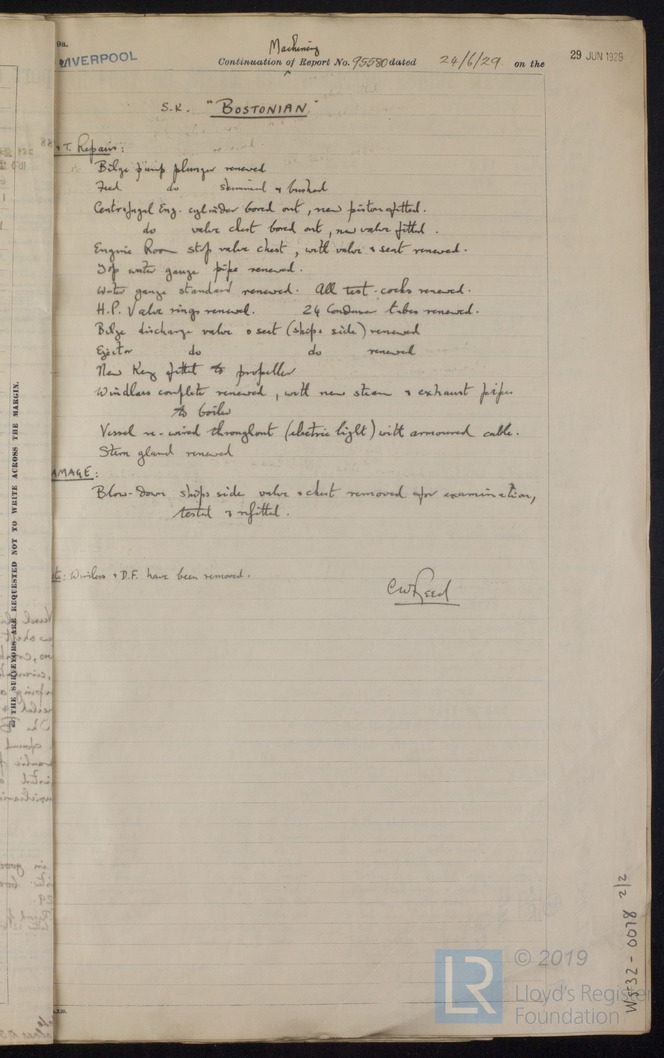 9a.
LIVERPOOL
Machinery
Continuation of Report No. 95580 dated 24/6/29. on the
29 JUN 1929
S.K. "BOSTONIAN"
& T. Repairs:
Bilge pump plunger renewed
Feed do skimmed & bushed
Centrifugal Eng. cylinder bored out, new piston fitted.
do valve chest bored out, new valve fitted.
Engine Room stop valve chest, with valve & seat renewed.
Top water gauge pipe renewed.
Water gauge standard renewed. All test-cocks renewed.
H.P. Valve rings renewed. 24 Condenser tubes renewed.
Bilge discharge valve & seat (ships side) renewed
Ejector do do renewed
New Key fitted to propeller
Windlass complete renewed, with new steam & exhaust pipes
to boiler
Vessel re-wired throughout (electric light) with armoured cable.
Stern gland renewed
AMAGE:
Blow-down ships side valve & chest removed for examination,
tested & refitted.
Wireless & D.F. have been removed.
CW Reed
THE SURVEYORS ARE REQUESTED NOT TO WRITE ACROSS THE MARGIN.
W532-0078 2/2
LR
© 2019
Lloyd's Register
Foundation